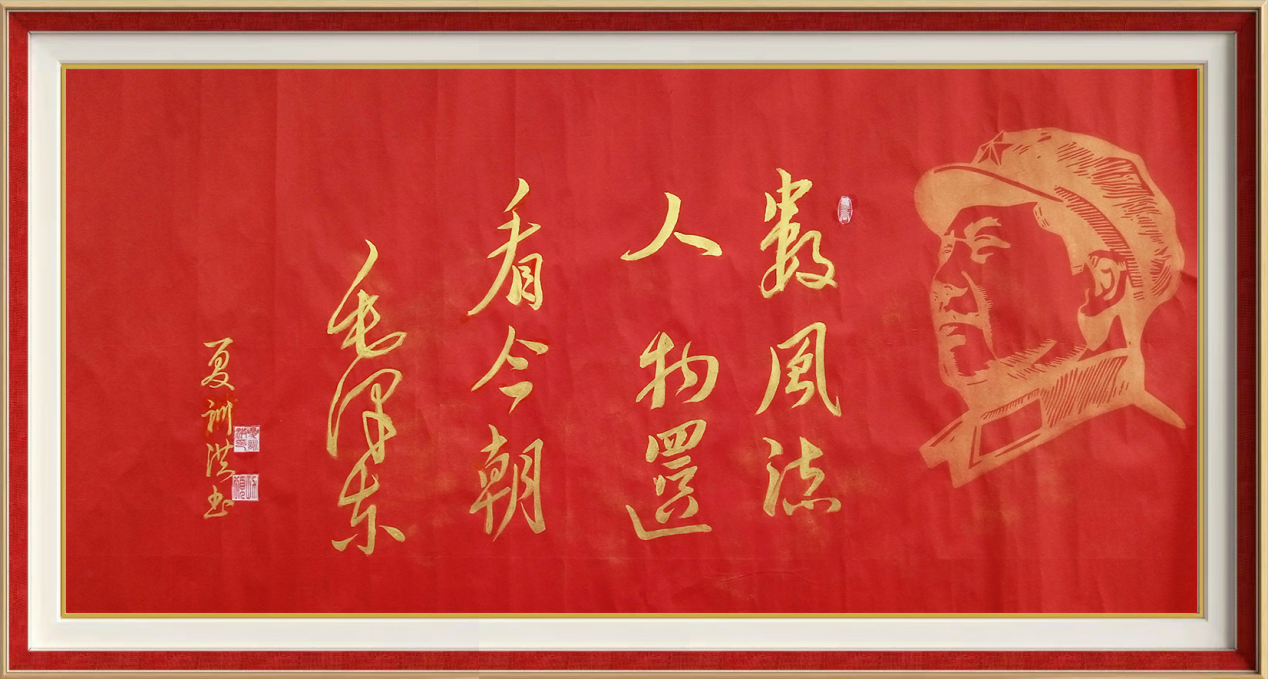 數風流
人物還
看今朝
毛泽东
夏訓洪书